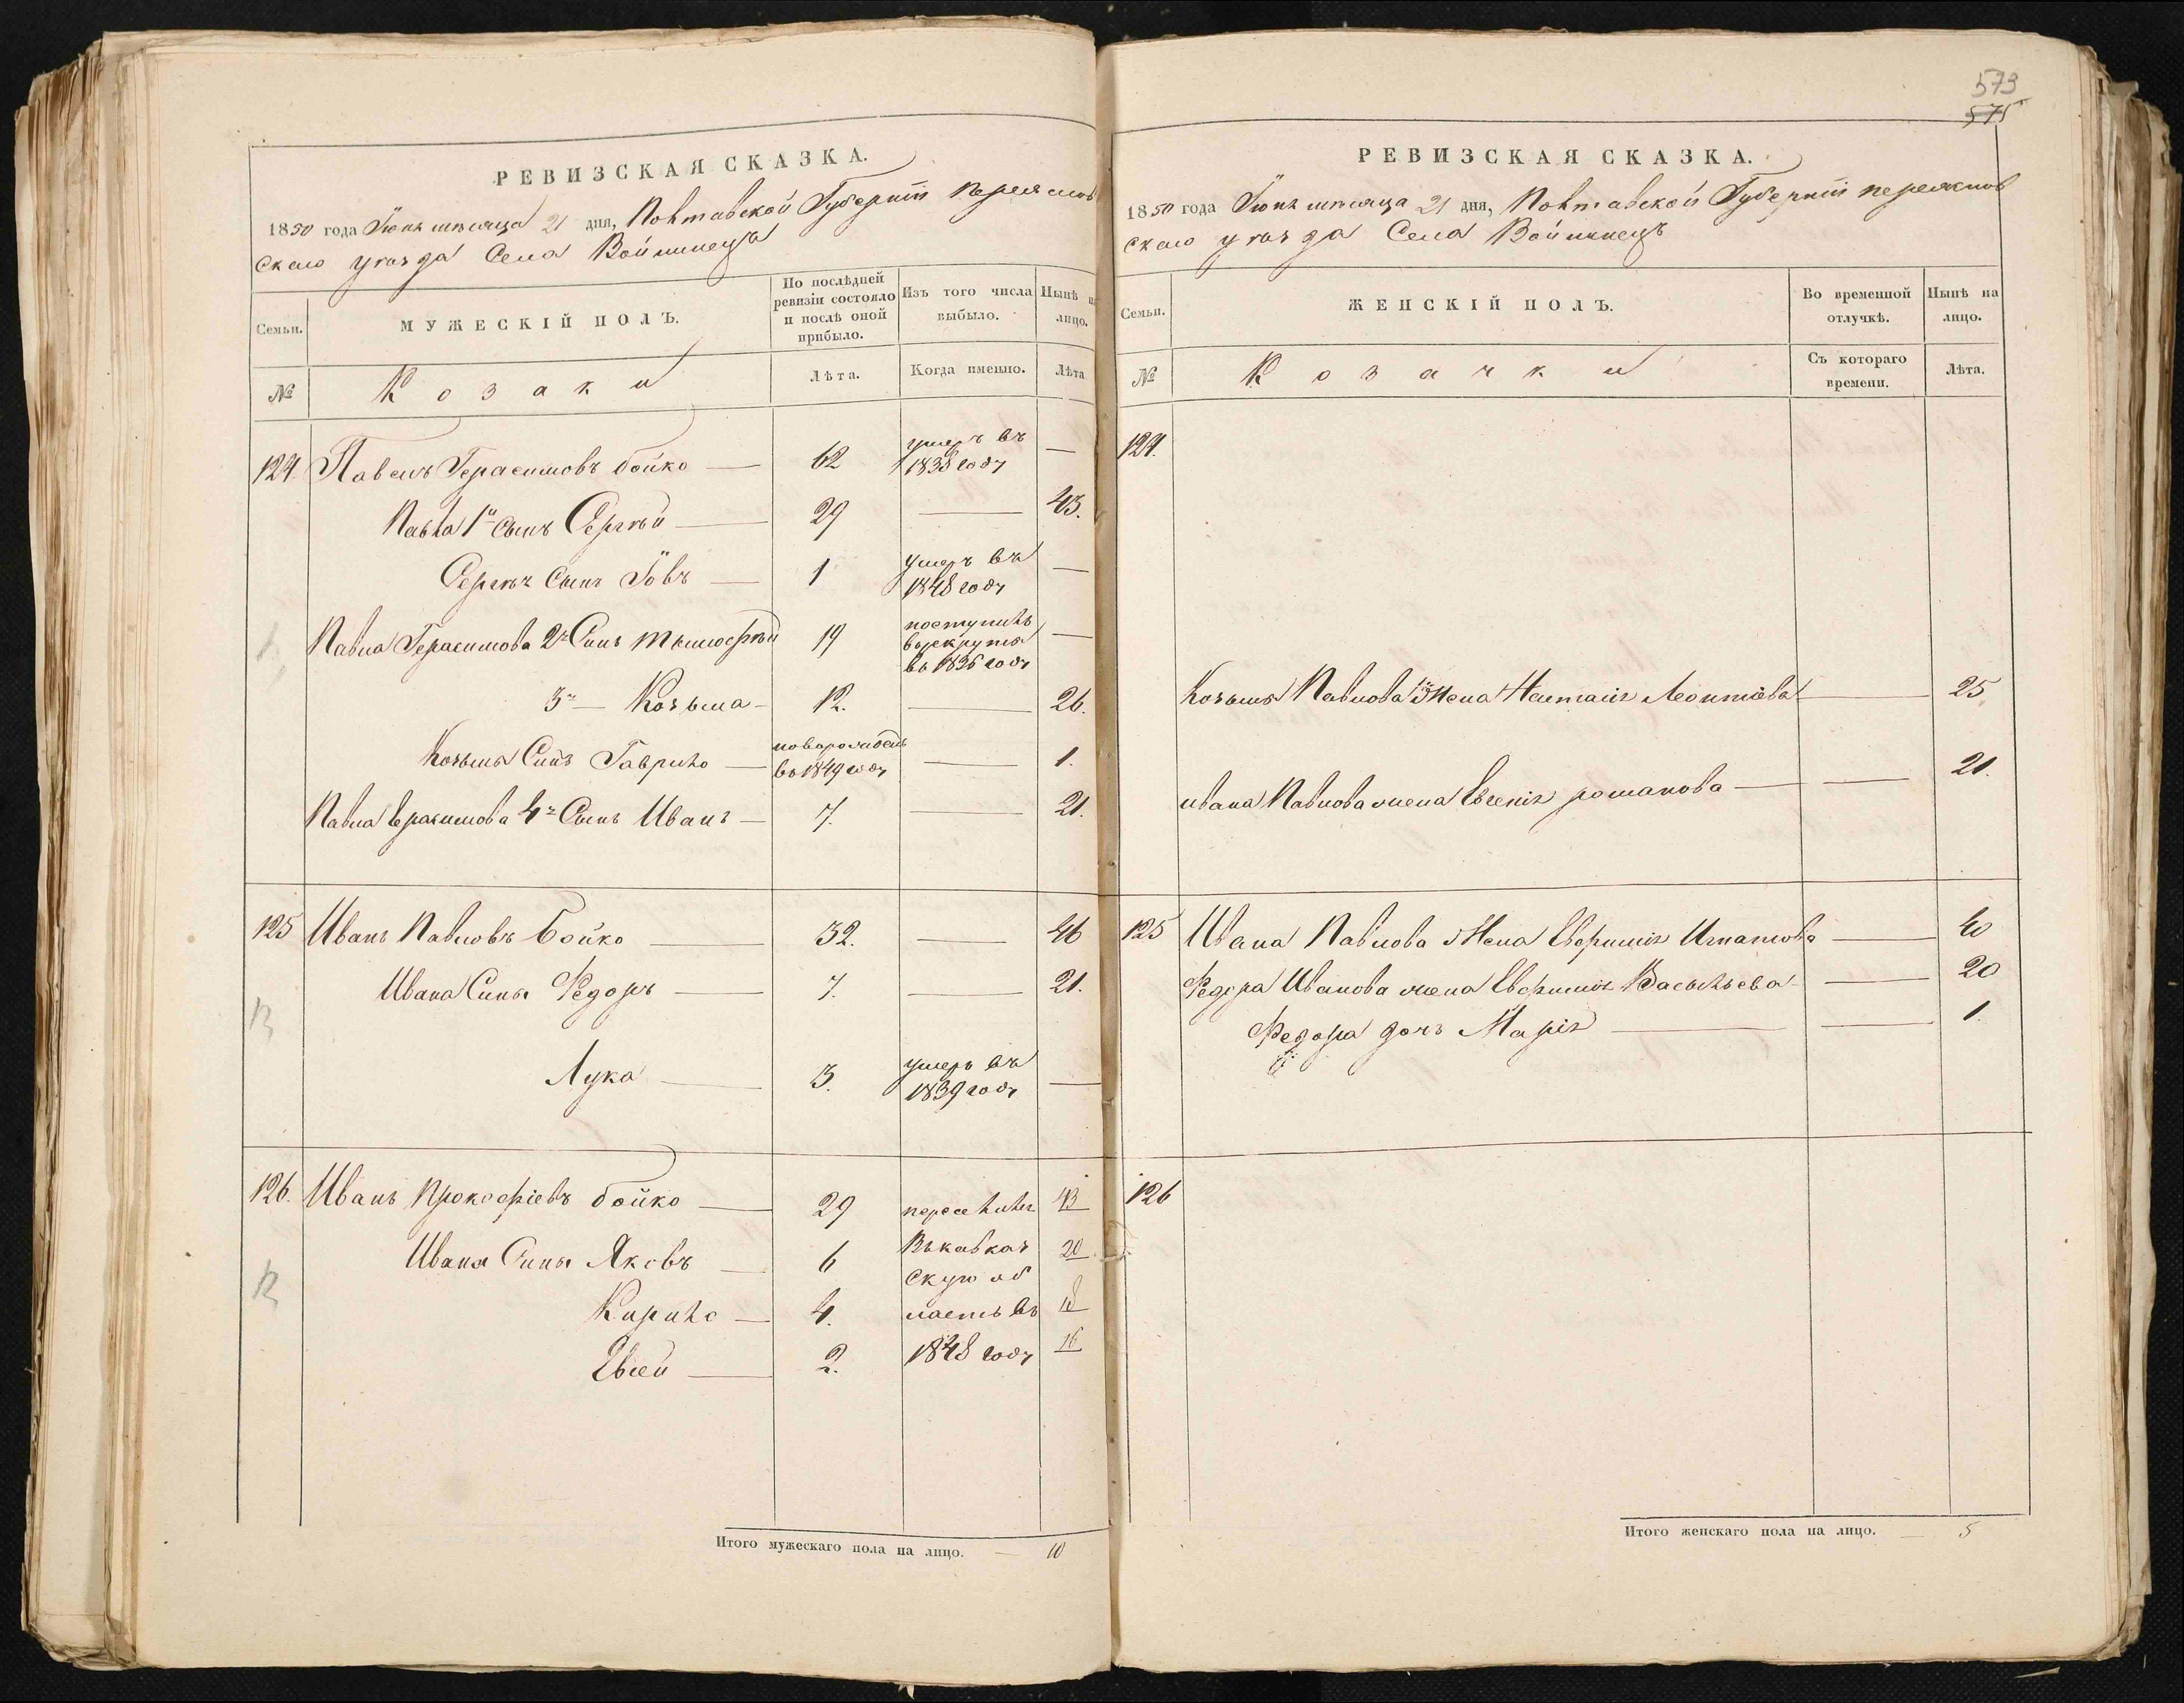 РЕВИЗСКАЯ СКАЗКА.
1850 года Іюнь мѣсяца 21 дня, Полтавской Губерніи Переяслов
скаго уѣзда Села Войтинецъ
Семьи.
МУЖЕСКІЙ ПОЛЪ.
По послѣдней ревизіи состояло и послѣ оной прибыло.
Изъ того числа выбыло.
Нынѣ на лицо.
№
Козаки
Лѣта.
Когда именно.
Лѣта
124 Павелъ Герасимовъ бойко — 62 умеръ въ 1838 году —
Павла 1й Сынъ Сергѣй — 29 — 43.
Сергѣя Сынъ Іовъ — 1 умеръ въ 1848 году —
Павла Герасимова 2й Сынъ Тимофѣй 19 поступилъ в рекруты въ 1836 году —
3й — Козьма — 12. — 26.
Козьмы Сынъ Гаврило — новорожденъ въ 1849 году — 1.
Павла Герасимова 4й Сынъ Иванъ — 7. — 21.
125 Иванъ Павловъ Бойко — 32. — 46
Ивана Сыны Федоръ — 7. — 21.
Лука — 3. умеръ въ 1839 году —
126. Иванъ Прокофіевъ бойко — 29 переселились 43
Ивана Сыны Яковъ — 6 въ кавказ 20
скую об
Кирило — 4. ласть въ 18
Евсей — 2. 1848 году 16
Итого мужескаго пола на лицо. — 10
573
575
РЕВИЗСКАЯ СКАЗКА.
1850 года Іюнь мѣсяца 21 дня, Полтавской Губерніи Переяслов
скаго уѣзда Села Войтинецъ
Семьи.
ЖЕНСКІЙ ПОЛЪ.
Во временной отлучкѣ.
Нынѣ на лицо.
№
Козачки
Съ котораго времени.
Лѣта.
124.
Козьмы Павлова Жена Наталія Леонтіева — — 25
ивана Павлова жена Евгенія романова — — 21.
125 Ивана Павлова Жена Евфимія Игнатова — 40
Федора Иванова жена Евфимія Васильева — — 20
Федора дочь Марія — — 1
126
Итого женскаго пола на лицо. — 5